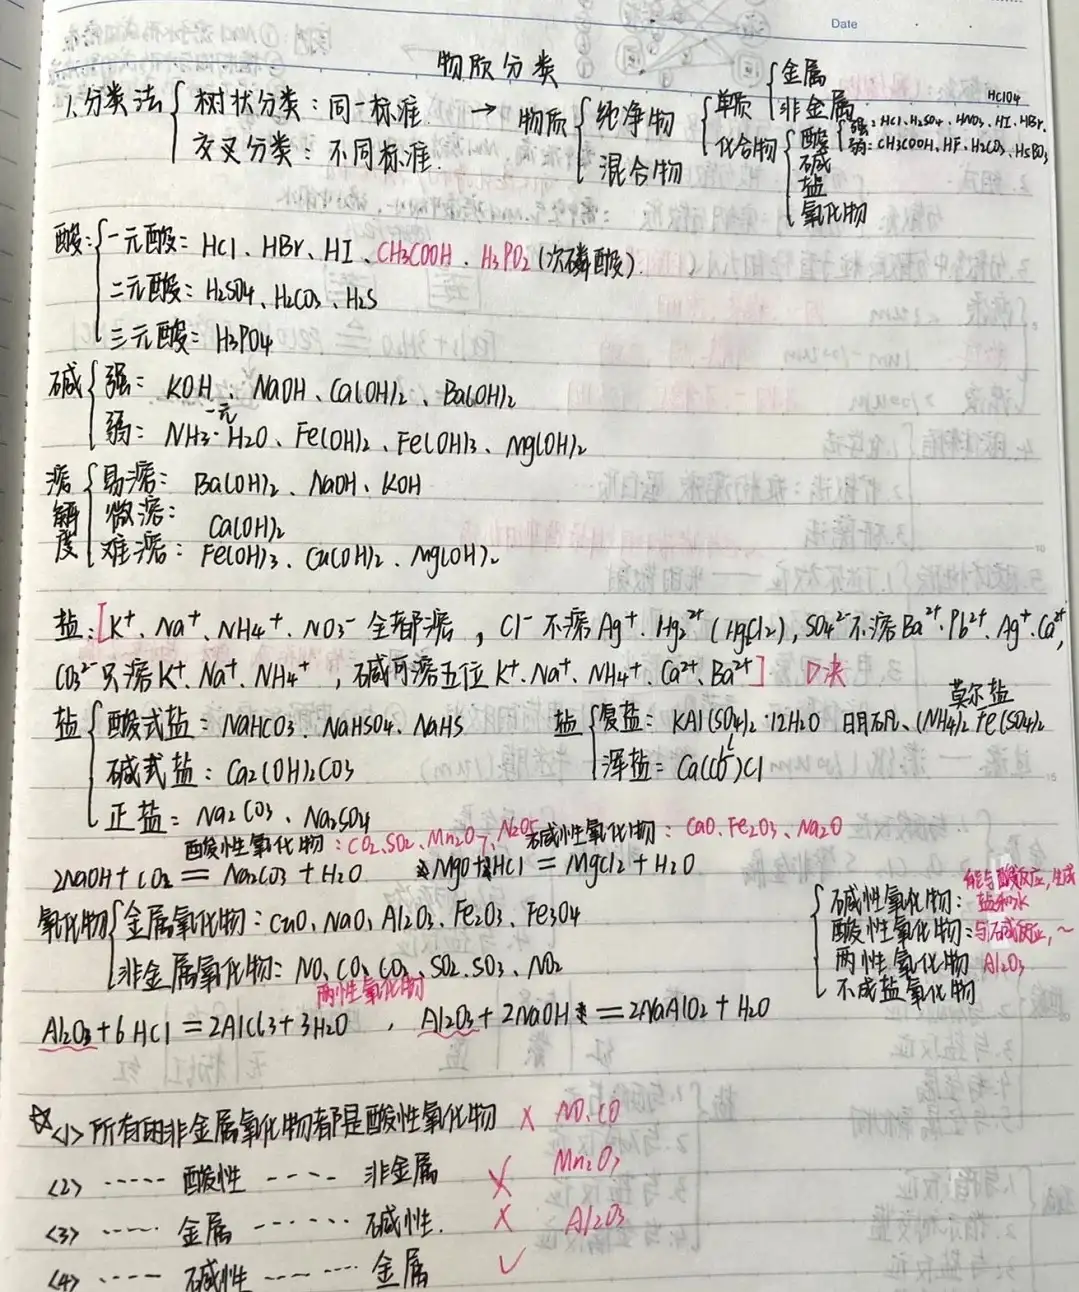 Date
物质分类
1.分类法 { 树状分类：同一标准 → 物质 { 纯净物 { 单质 { 金属
交叉分类：不同标准. 混合物 化合物 非金属 HClO4
酸 { 强：HCl、H2SO4、HNO3、HI、HBr.
弱：CH3COOH、HF、H2CO3、
碱
盐
氧化物
酸：{ 一元酸：HCl、HBr、HI、CH3COOH、H3PO2(次磷酸).
二元酸：H2SO4、H2CO3、H2S
三元酸：H3PO4
碱 { 强：KOH、NaOH、Ca(OH)2、Ba(OH)2
一元
弱：NH3·H2O、Fe(OH)2、Fe(OH)3、Mg(OH)2
溶解度 { 易溶：Ba(OH)2、NaOH、KOH
微溶：Ca(OH)2
难溶：Fe(OH)3、Cu(OH)2、Mg(OH)2
盐：[K⁺、Na⁺、NH4⁺、NO3⁻ 全部溶，Cl⁻ 不溶Ag⁺、Hg2²⁺(HgCl2)，SO4²⁻不溶Ba²⁺、Pb²⁺、Ag⁺、Ca²⁺，
CO3²⁻只溶K⁺、Na⁺、NH4⁺，碱可溶五位K⁺、Na⁺、NH4⁺、Ca²⁺、Ba²⁺] 口决
盐 { 酸式盐：NaHCO3、NaHSO4、NaHS
碱式盐：Cu2(OH)2CO3
正盐：Na2CO3、Na2SO4
莫尔盐
盐 { 复盐：KAl(SO4)2·12H2O 明矾、(NH4)2Fe(SO4)2
浑盐：Ca(ClO)Cl
酸性氧化物：CO2、SO2、Mn2O7、N2O5 碱性氧化物：CaO、Fe2O3、Na2O
2NaOH+CO2=Na2CO3+H2O MgO+2HCl=MgCl2+H2O
氧化物 { 金属氧化物：CuO、NaO、Al2O3、Fe2O3、Fe3O4
非金属氧化物：NO、CO、CO2、SO2、SO3、NO2
{ 碱性氧化物：能与酸反应，生成盐和水
酸性氧化物：与碱反应，~
两性氧化物 Al2O3
不成盐氧化物
两性氧化物
Al2O3+6HCl=2AlCl3+3H2O ，Al2O3+2NaOH=2NaAlO2+H2O
☆<1>所有的非金属氧化物都是酸性氧化物 × NO、CO
<2> ····· 酸性 ---- 非金属 × Mn2O7
<3> ····· 金属 ······ 碱性. × Al2O3
<4> ····· 碱性 ······ 金属 √